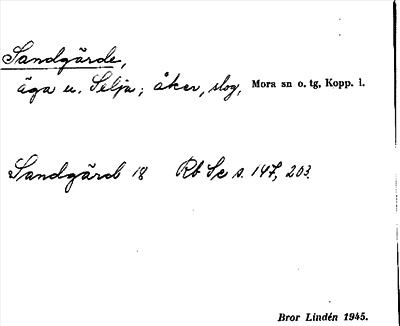 Sandgärde,
äga u. Selja; åker, slog, Mora sn o. tg, Kopp. l.
Sandgärd 18 Rb Se s. 147, 203.
Bror Lindén 1945.